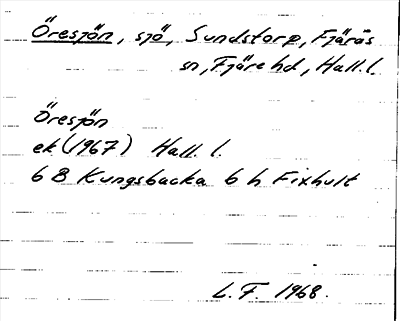 Öresjön, sjö, Sundstorp, Fjärås
sn, Fjäre hd, Hall. l.
Öresjön
ek (1967) Hall. l.
6 B Kungsbacka 6 h Fixhult
L. F. 1968.